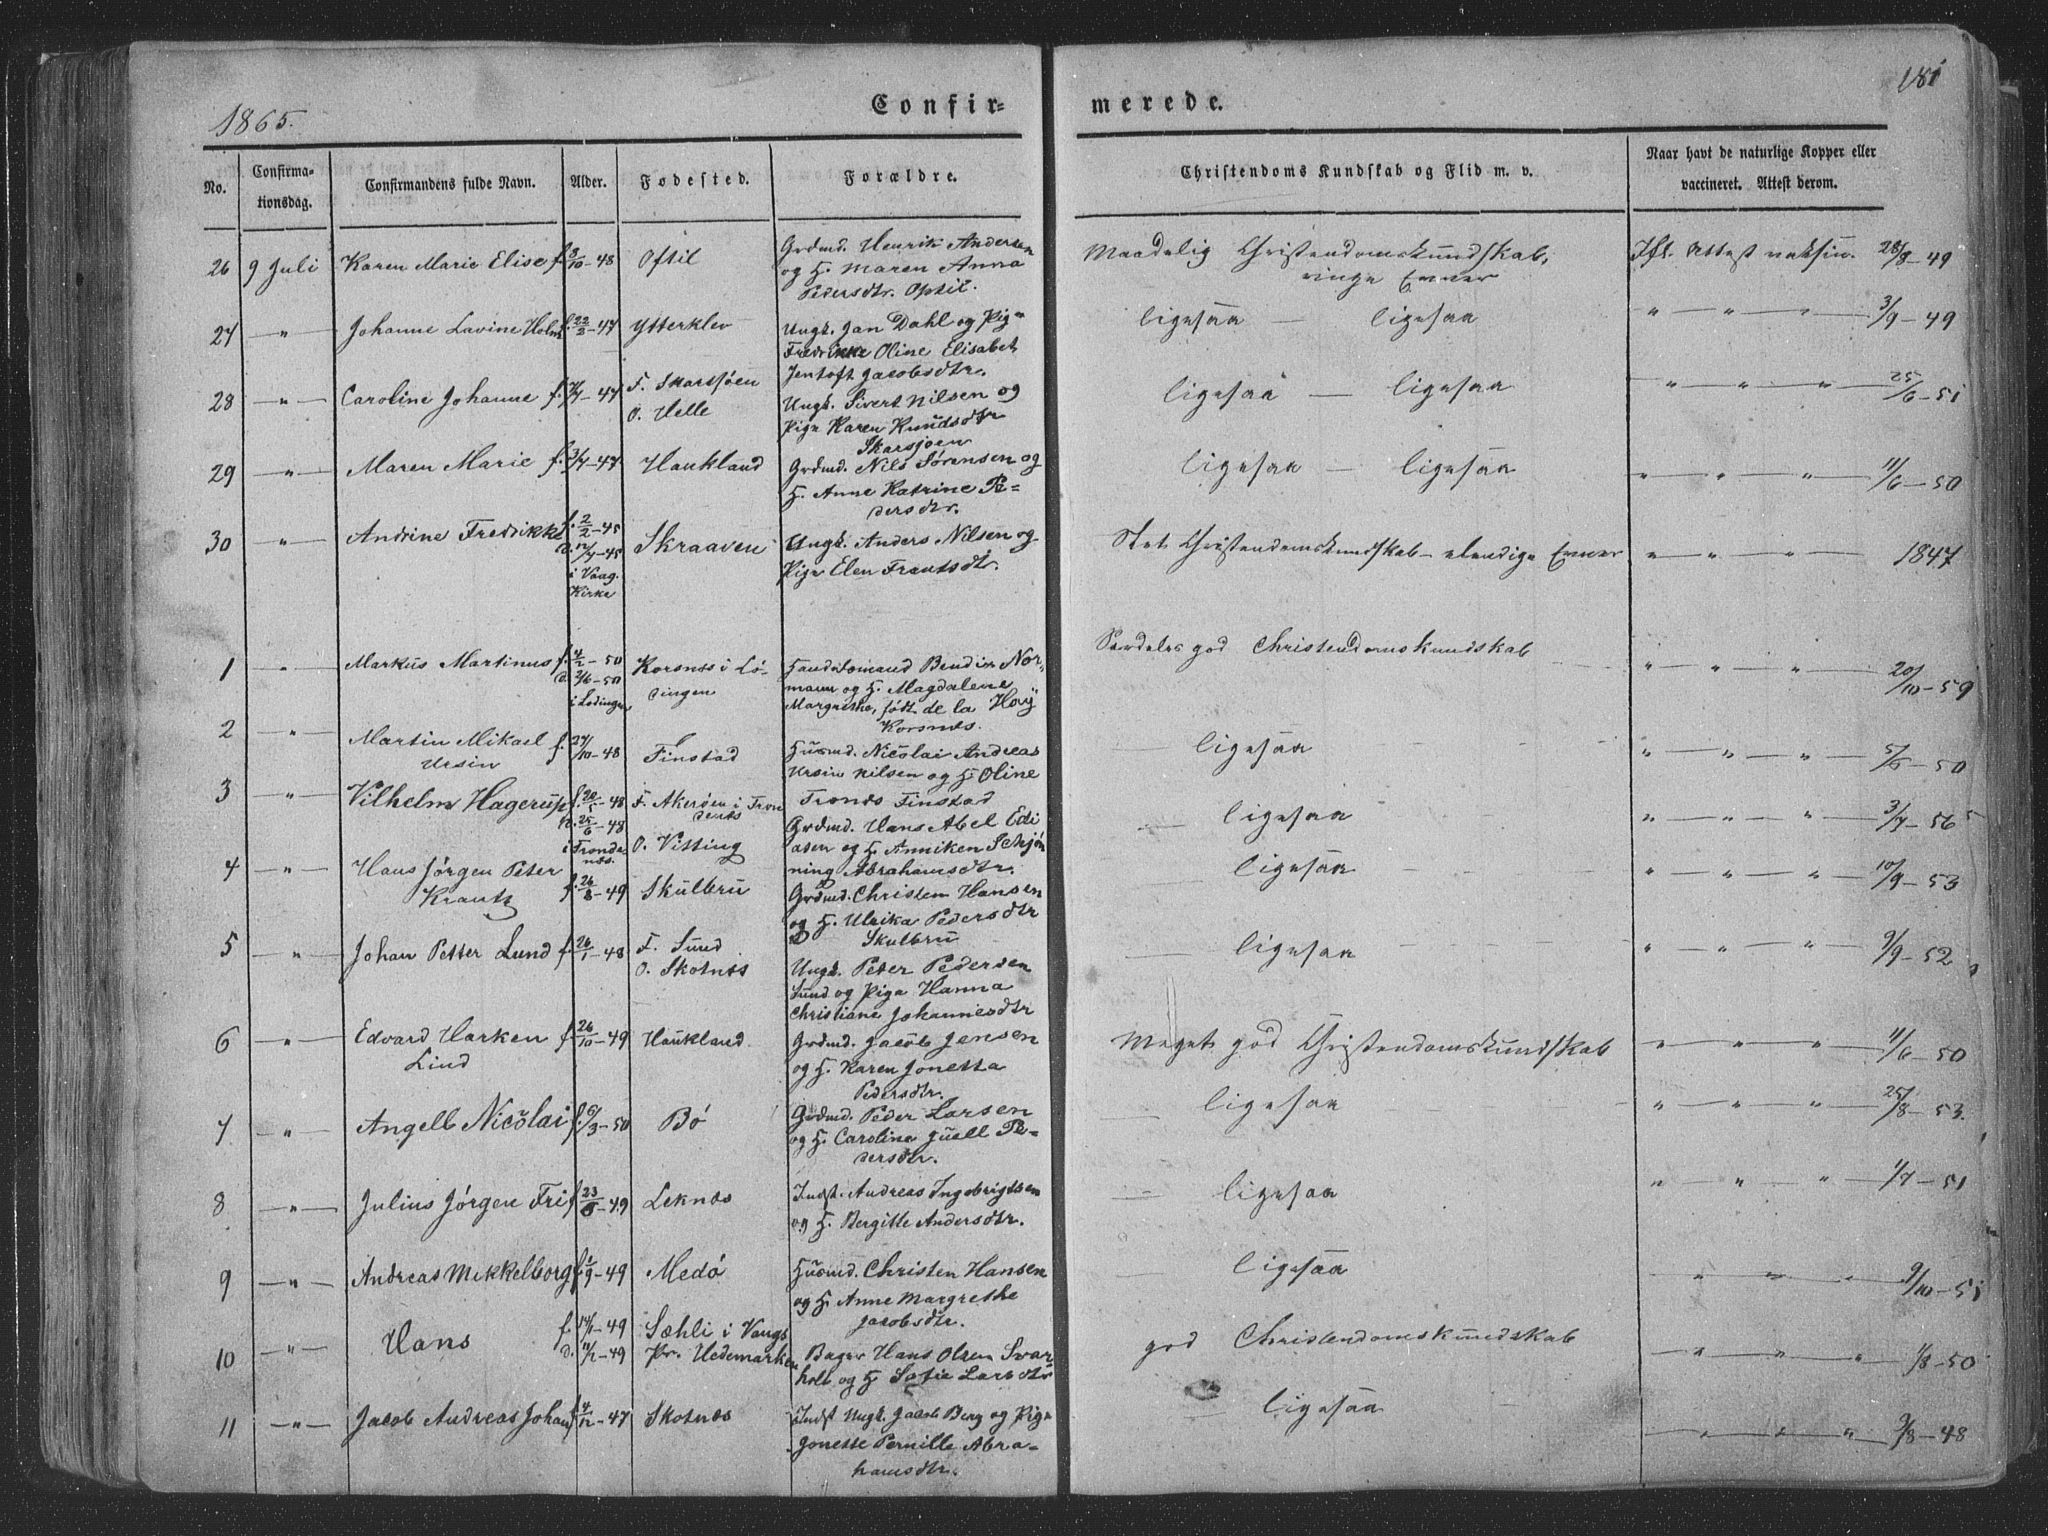 181
1865.
Confir- merede.
No.
Confirma-
tionsdag.
Confirmandens fulde Navn.
Alder.
Fødested.
Forældre.
Christendoms Kundskab og Flid m. v.
Naar havt de naturlige Kopper eller
vaccineret. Attest derom.
26 9 Juli Karen Marie Elise f. 3/10-48 Oftil
Grdmd. Henrik Andersen
og H. Maren Anna
Pedersdtr. Optil.
Maadelig Christendomskundskab,
ringe Evner
Ifl. Attest vaksin. 28/8-49
27 " Johanne Lavine Holm f. 22/2-47 Ytterklev
Ungk. Jan Dahl og Pige
Fredrikke Oline Elisabet
Jentoft Jacobsdtr.
ligesaa — ligesaa
" " " 3/9-49
28 " Caroline Johanne f. -47
F. Skarsjøen
O. Helle
Ungk. Sivert Nilsen og
Pige Karen Knudsdtr
Skarsjøen
ligesaa — ligesaa
" " " 25/6-51
29 " Maren Marie f. 3/7-47 Haukland
Grdmd. Nils Sørensen og
H. Anne Katrine Pe-
dersdtr.
ligesaa — ligesaa
" " " 11/6-50
30 " Andrine Fredrikke f. 2/2-45
d. -45
i Vaag.
Kirke
Skraaven
Ungk. Anders Nilsen og
Pige Elen Frantsdtr.
Slet Christendomskundskab – elendige Evner
" " " 1847
1 " Markus Martinus f. 4/2-50
d. 2/6-50
i Lødingen
Korsnes i Lø-
dingen
Handelsmand Bendix Nor-
mann og H. Magdalene
Margrethe, født de la Hoÿ
Korsnes.
Særdeles god Christendomskundskab
" " " 20/10-59
2 " Martin Mikael
Ursin
f. 27/10-48 Finstad
Husmd. Nicolai Andreas
Ursin Nilsen og H. Oline
Tronds Finstad
ligesaa
" " " 5/5-50
3 " Vilhelm Hagerup f. 20/5-48
d. 25/6-48
i Tronde-
nes.
F. Akerøen i Tron
denes
O. Vitting
Grdmd. Hans Abel Edi
asen og H. Anniken Schjøn
ning Abrahamsdtr.
ligesaa
" " " 3/7-56
4 " Hans Jørgen Peter
Krantz
f. 26/8-49 Skulbru
Grdmd. Christen Hansen
og H. Ulrika Pedersdtr
Skulbru
ligesaa
" " " 10/9-53
5 " Johan Petter Lund f. 26/1-48
F. Sund
O. Skotnes
Ungk. Peter Pedersen
Sund og Pige Hanna
Christiane Johannesdtr
ligesaa
" " " 9/9-52
6 " Edvard Harken
Lind
f. 26/10-49 Haukland
Grdmd. Jacob Jensen
og H. Karen Jonetta
Pedersdtr.
Meget god Christendomskundskab
" " " 11/6-50
7 " Angell Nicolai f. 6/3-50 Bø
Grdmd. Peder Larsen
og H. Caroline Juell Pe-
dersdtr.
ligesaa
" " " 25/8-53.
8 " Julius Jørgen Fri f. -49 Leknes
Indst. Andreas Ingebrigtsen
og H. Bergitte Andersdtr.
ligesaa
" " " 1/7-51
9 " Andreas Mikkelborg f. 1/9-49 Medø
Husmd. Christen Hansen
og H. Anne Margrethe
Jacobsdtr.
ligesaa
" " " 9/10-51
10 " Hans f. 14/1-49
d. 11/2-49
Sæhli i Vangs
Pr. Hedemarken
Bager Hans Olsen Svar
holt og H. Sofie Larsdtr
god Christendomskundskab
" " " 1/8-50
11 " Jacob Andreas Johan f. 4/12-47 Skotnes
Indst Ungk. Jacob Berg og Pige
Jonette Pernille Abra-
hamsdtr.
ligesaa
" " " 9/8-48